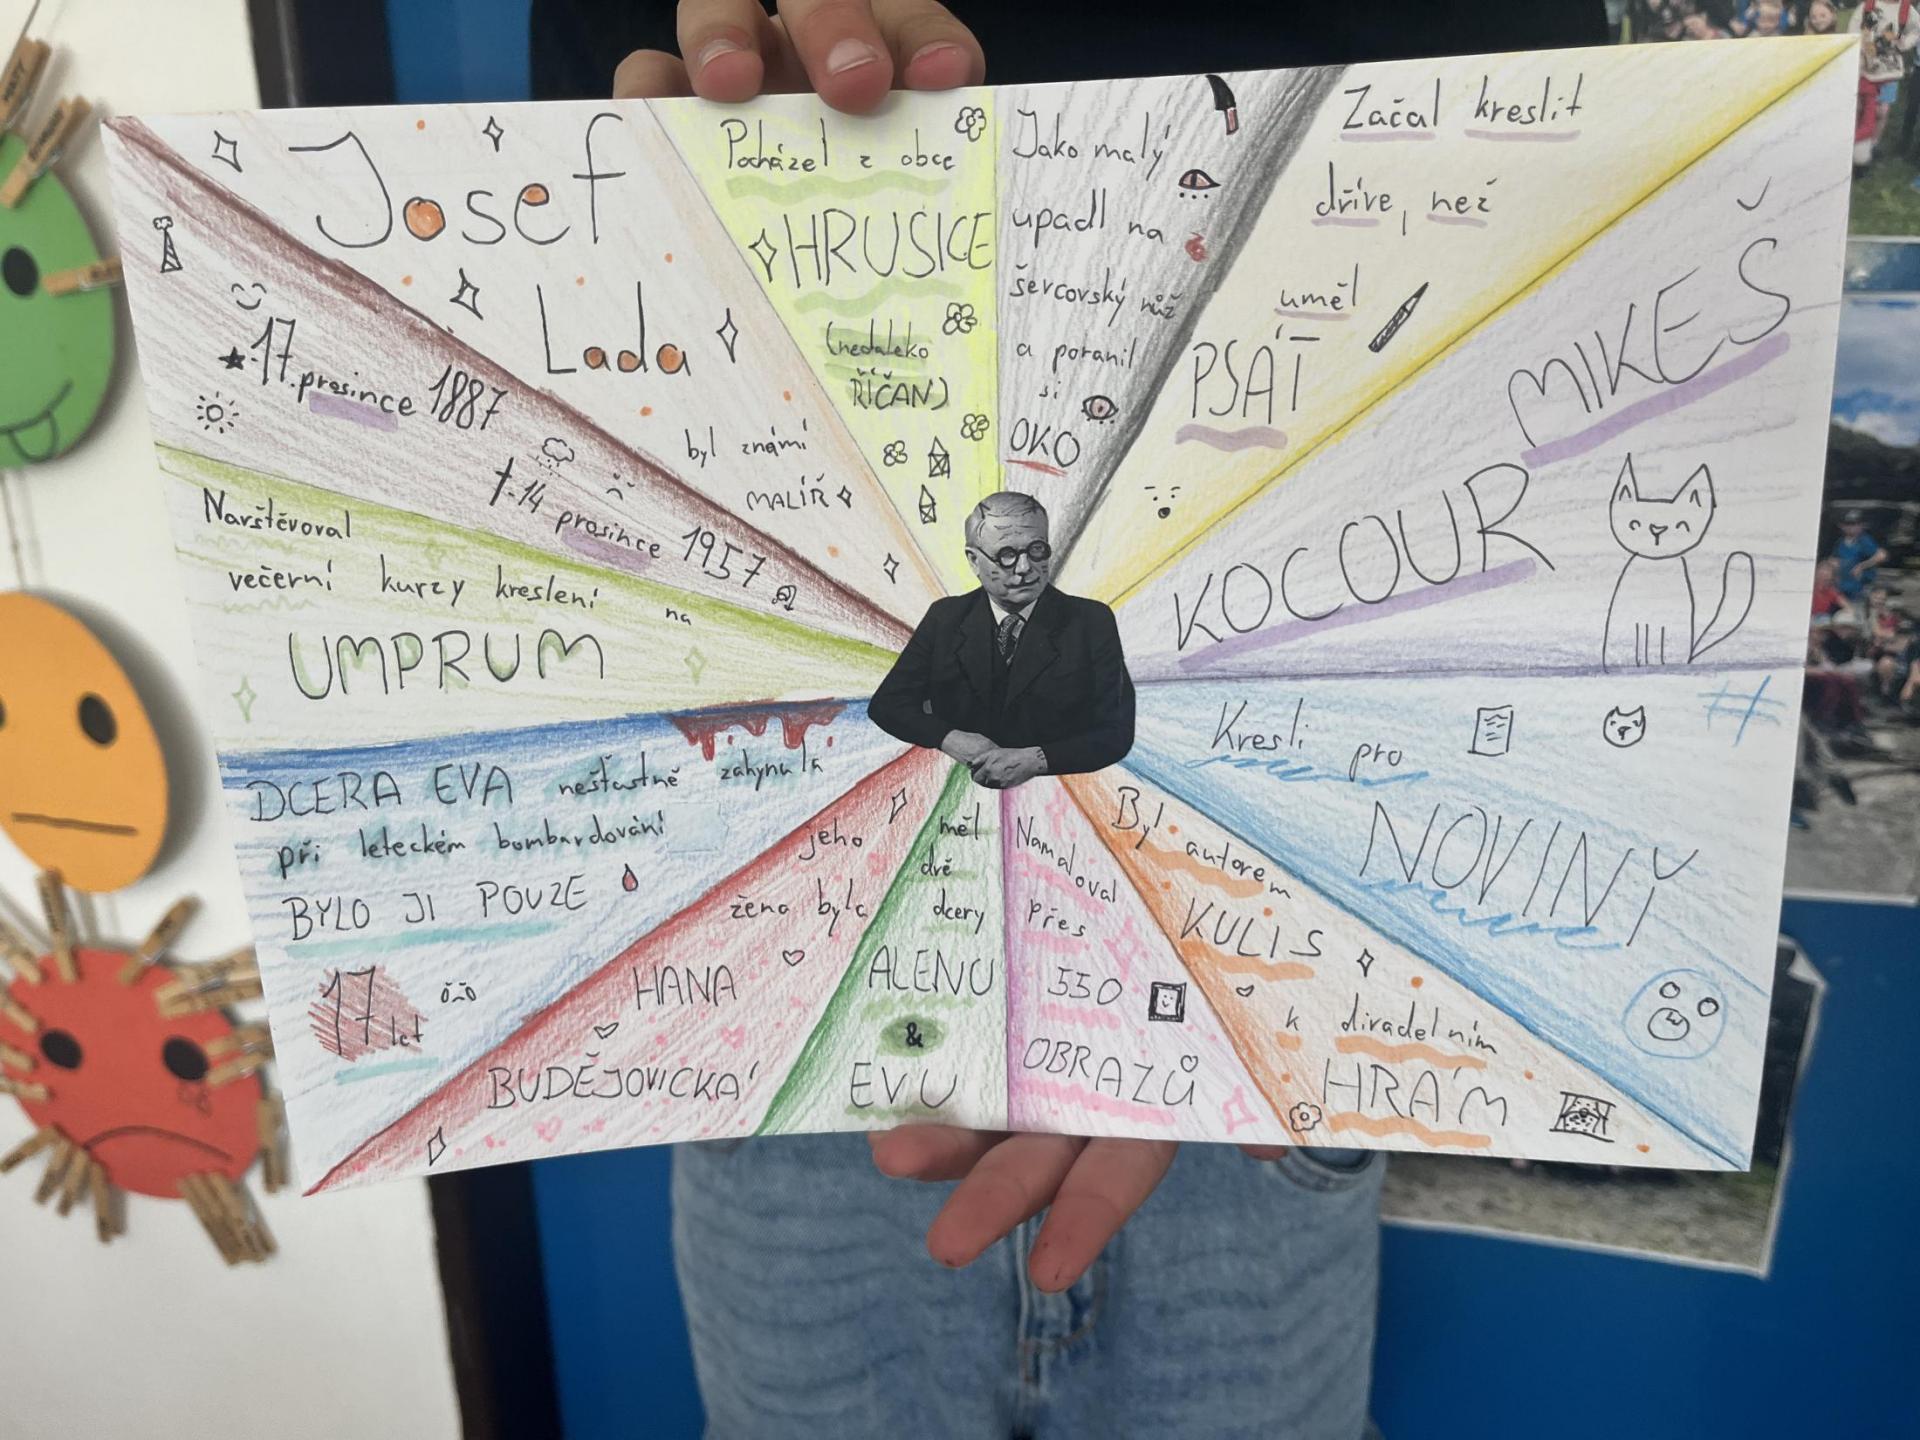 Josef
Lada
byl známí
MALÍŘ
Pocházel z obce
HRUSICE
(nedaleko
ŘÍČAN)
Jako malý
upadl na
ševcovský nůž
a poranil
si
OKO
Začal kreslit
dříve, než
uměl
PSÁT
KOCOUR MIKEŠ
Kresli pro
NOVINY
Byl autorem
KULIS
k divadelním
HRÁM
Namaloval
přes
550
OBRAZŮ
měl
dvě
dcery
ALENU
&
EVU
jeho
žena byla
HANA
BUDĚJOVICKÁ
DCERA EVA nešťastně zahynula
při leteckém bombardování
BYLO JI POUZE
17 let
Navštěvoval
večerní kurzy kreslení na
UMPRUM
17. prosince 1887
†.14 prosince 1957